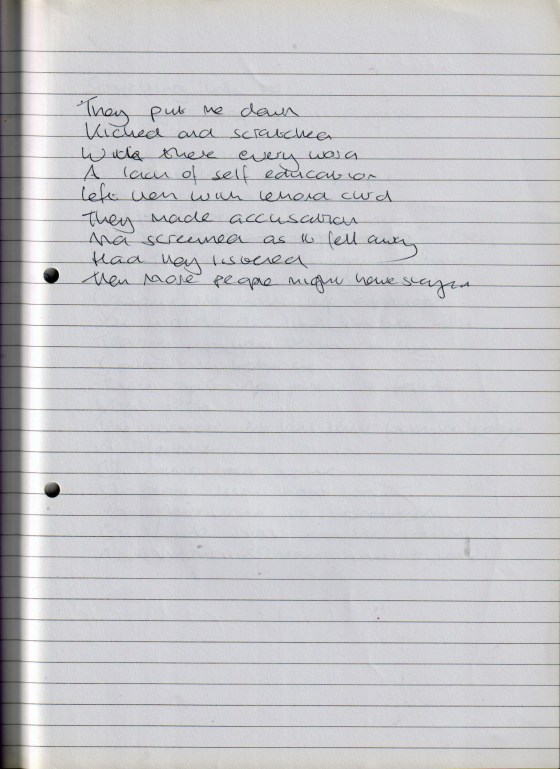 They put me down
Kicked and scratched
With there every word
A lack of self education
left them with lemond curd
They made accusation
And screamed as it fell away
Had they listened
then more people might have stayed